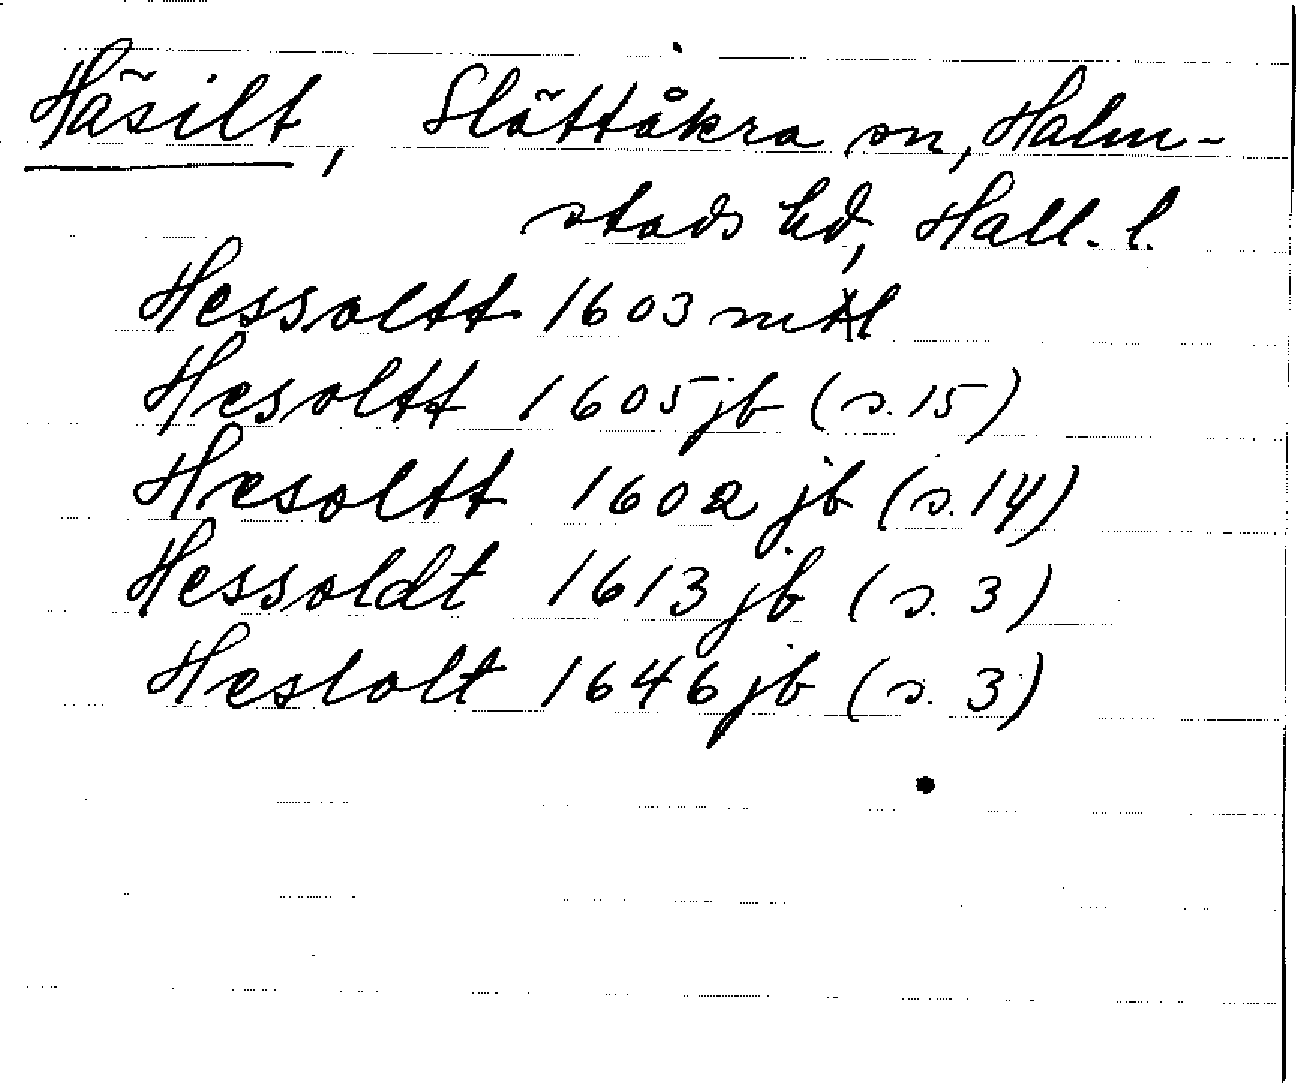 Häsilt, Slättåkra sn, Halm-
stads hd, Hall. l.
Hessoltt 1603 mtl
Hesoltt 1605 jb (s. 15)
Hesoltt 1602 jb (s. 14)
Hessoldt 1613 jb (s. 3)
Heslolt 1646 jb (s. 3)